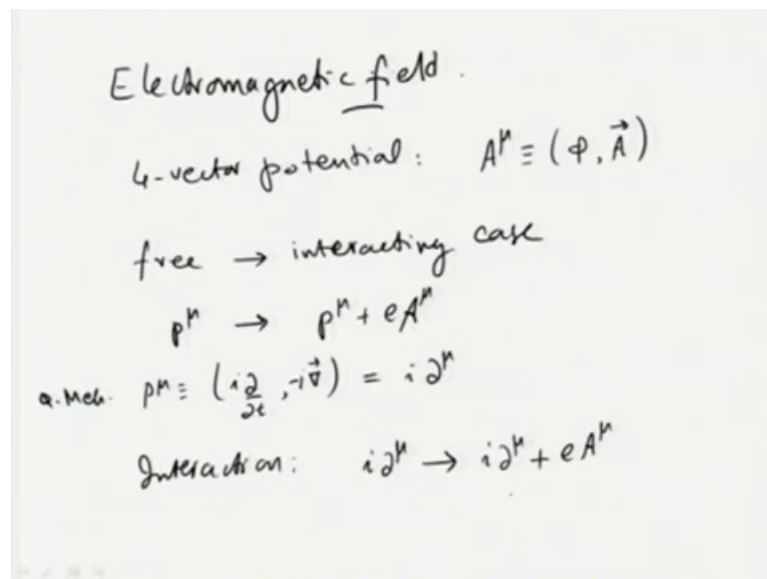 Electromagnetic field.
4-vector potential: A^μ ≡ (φ, A⃗)
free → interacting case
p^μ → p^μ + eA^μ
Q.Mech. p^μ ≡ (i∂/∂t, -i∇⃗) = i∂^μ
Interaction: i∂^μ → i∂^μ + eA^μ